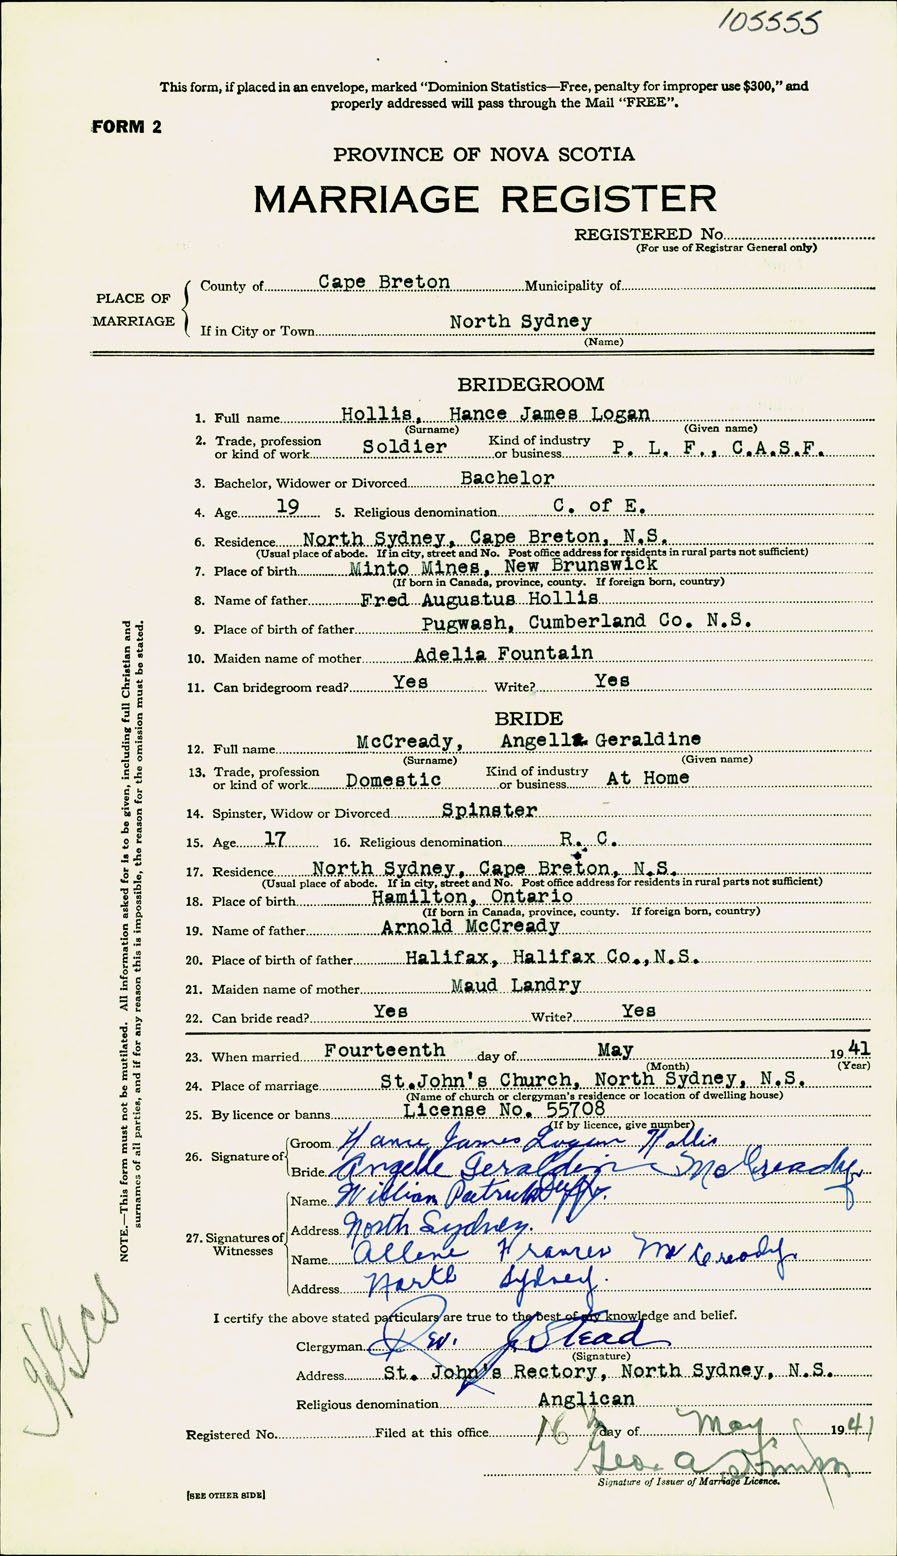 105555
This form, if placed in an envelope, marked “Dominion Statistics—Free, penalty for improper use $300,” and
properly addressed will pass through the Mail “FREE”.
FORM 2
PROVINCE OF NOVA SCOTIA
MARRIAGE REGISTER
REGISTERED No.
(For use of Registrar General only)
PLACE OF MARRIAGE
County of Cape Breton Municipality of
If in City or Town North Sydney
(Name)
BRIDEGROOM
1. Full name Hollis, Hance James Logan
(Surname) (Given name)
2. Trade, profession or kind of work Soldier Kind of industry or business P. L. F., C.A.S.F.
3. Bachelor, Widower or Divorced Bachelor
4. Age 19 5. Religious denomination C. of E.
6. Residence North Sydney, Cape Breton, N.S.
(Usual place of abode. If in city, street and No. Post office address for residents in rural parts not sufficient)
7. Place of birth Minto Mines, New Brunswick
(If born in Canada, province, county. If foreign born, country)
8. Name of father Fred Augustus Hollis
9. Place of birth of father Pugwash, Cumberland Co. N.S.
10. Maiden name of mother Adelia Fountain
11. Can bridegroom read? Yes Write? Yes
BRIDE
12. Full name McCready, Geraldine
(Surname) (Given name)
13. Trade, profession or kind of work Domestic Kind of industry or business At Home
14. Spinster, Widow or Divorced Spinster
15. Age 17 16. Religious denomination R. C.
17. Residence North Sydney, Cape Breton, N.S.
(Usual place of abode. If in city, street and No. Post office address for residents in rural parts not sufficient)
18. Place of birth Hamilton, Ontario
(If born in Canada, province, county. If foreign born, country)
19. Name of father Arnold McCready
20. Place of birth of father Halifax, Halifax Co., N.S.
21. Maiden name of mother Maud Landry
22. Can bride read? Yes Write? Yes
23. When married Fourteenth day of May 1941
(Month) (Year)
24. Place of marriage St.John's Church, North Sydney, N.S.
(Name of church or clergyman's residence or location of dwelling house)
25. By licence or banns License No. 55708
(If by licence, give number)
26. Signature of
Groom Hance James Logan Hollis
Bride Angelle Geraldine McCready
27. Signatures of Witnesses
Name William Patrick Duffy.
Address North Sydney.
Name Allene Frances McCready
Address North Sydney.
I certify the above stated particulars are true to the best of my knowledge and belief.
Clergyman Rev. J. Stead
(Signature)
Address St. John's Rectory, North Sydney, N.S.
Religious denomination Anglican
Registered No. Filed at this office 16th day of May 1941
Geo. A
Signature of Issuer of Marriage Licence.
[SEE OTHER SIDE]
NOTE.—This form must not be mutilated. All information asked for is to be given, including full Christian and
surnames of all parties, and if for any reason this is impossible, the reason for the omission must be stated.